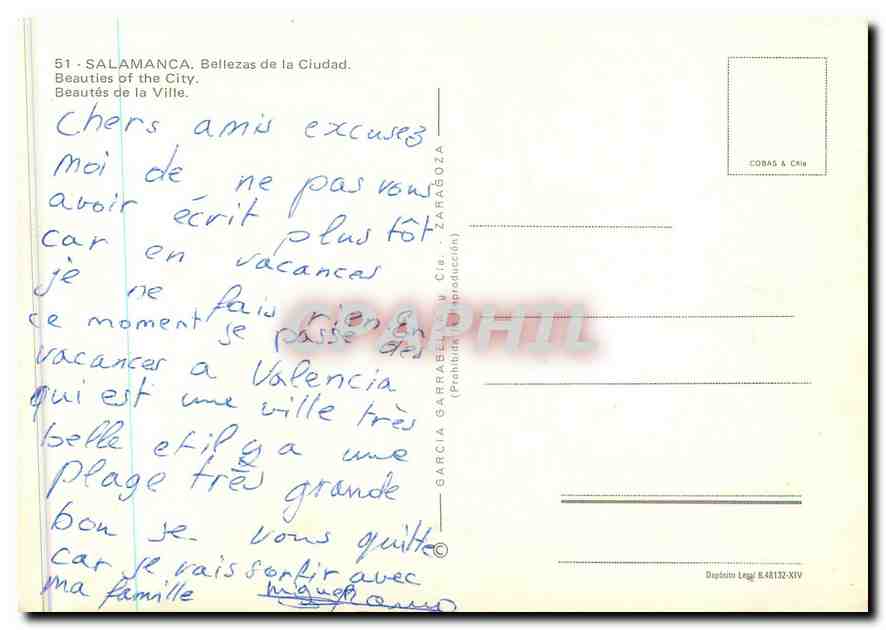 51 - SALAMANCA. Bellezas de la Ciudad.
Beauties of the City.
Beautés de la Ville.
Chers amis excusez
moi de ne pas vous
avoir écrit plus tôt
car en vacances
je ne fais rien en
ce moment je passe des
vacances a Valencia
qui est une ville très
belle et il y a une
plage très grande
bon je vous quitte
car je vais sortir avec
ma famille
GARCIA GARRABELLA y Cia. - ZARAGOZA
(Prohibida la reproducción)
©
COBAS & Chia
Depósito Legal B.48132-XIV
CPAPHIL